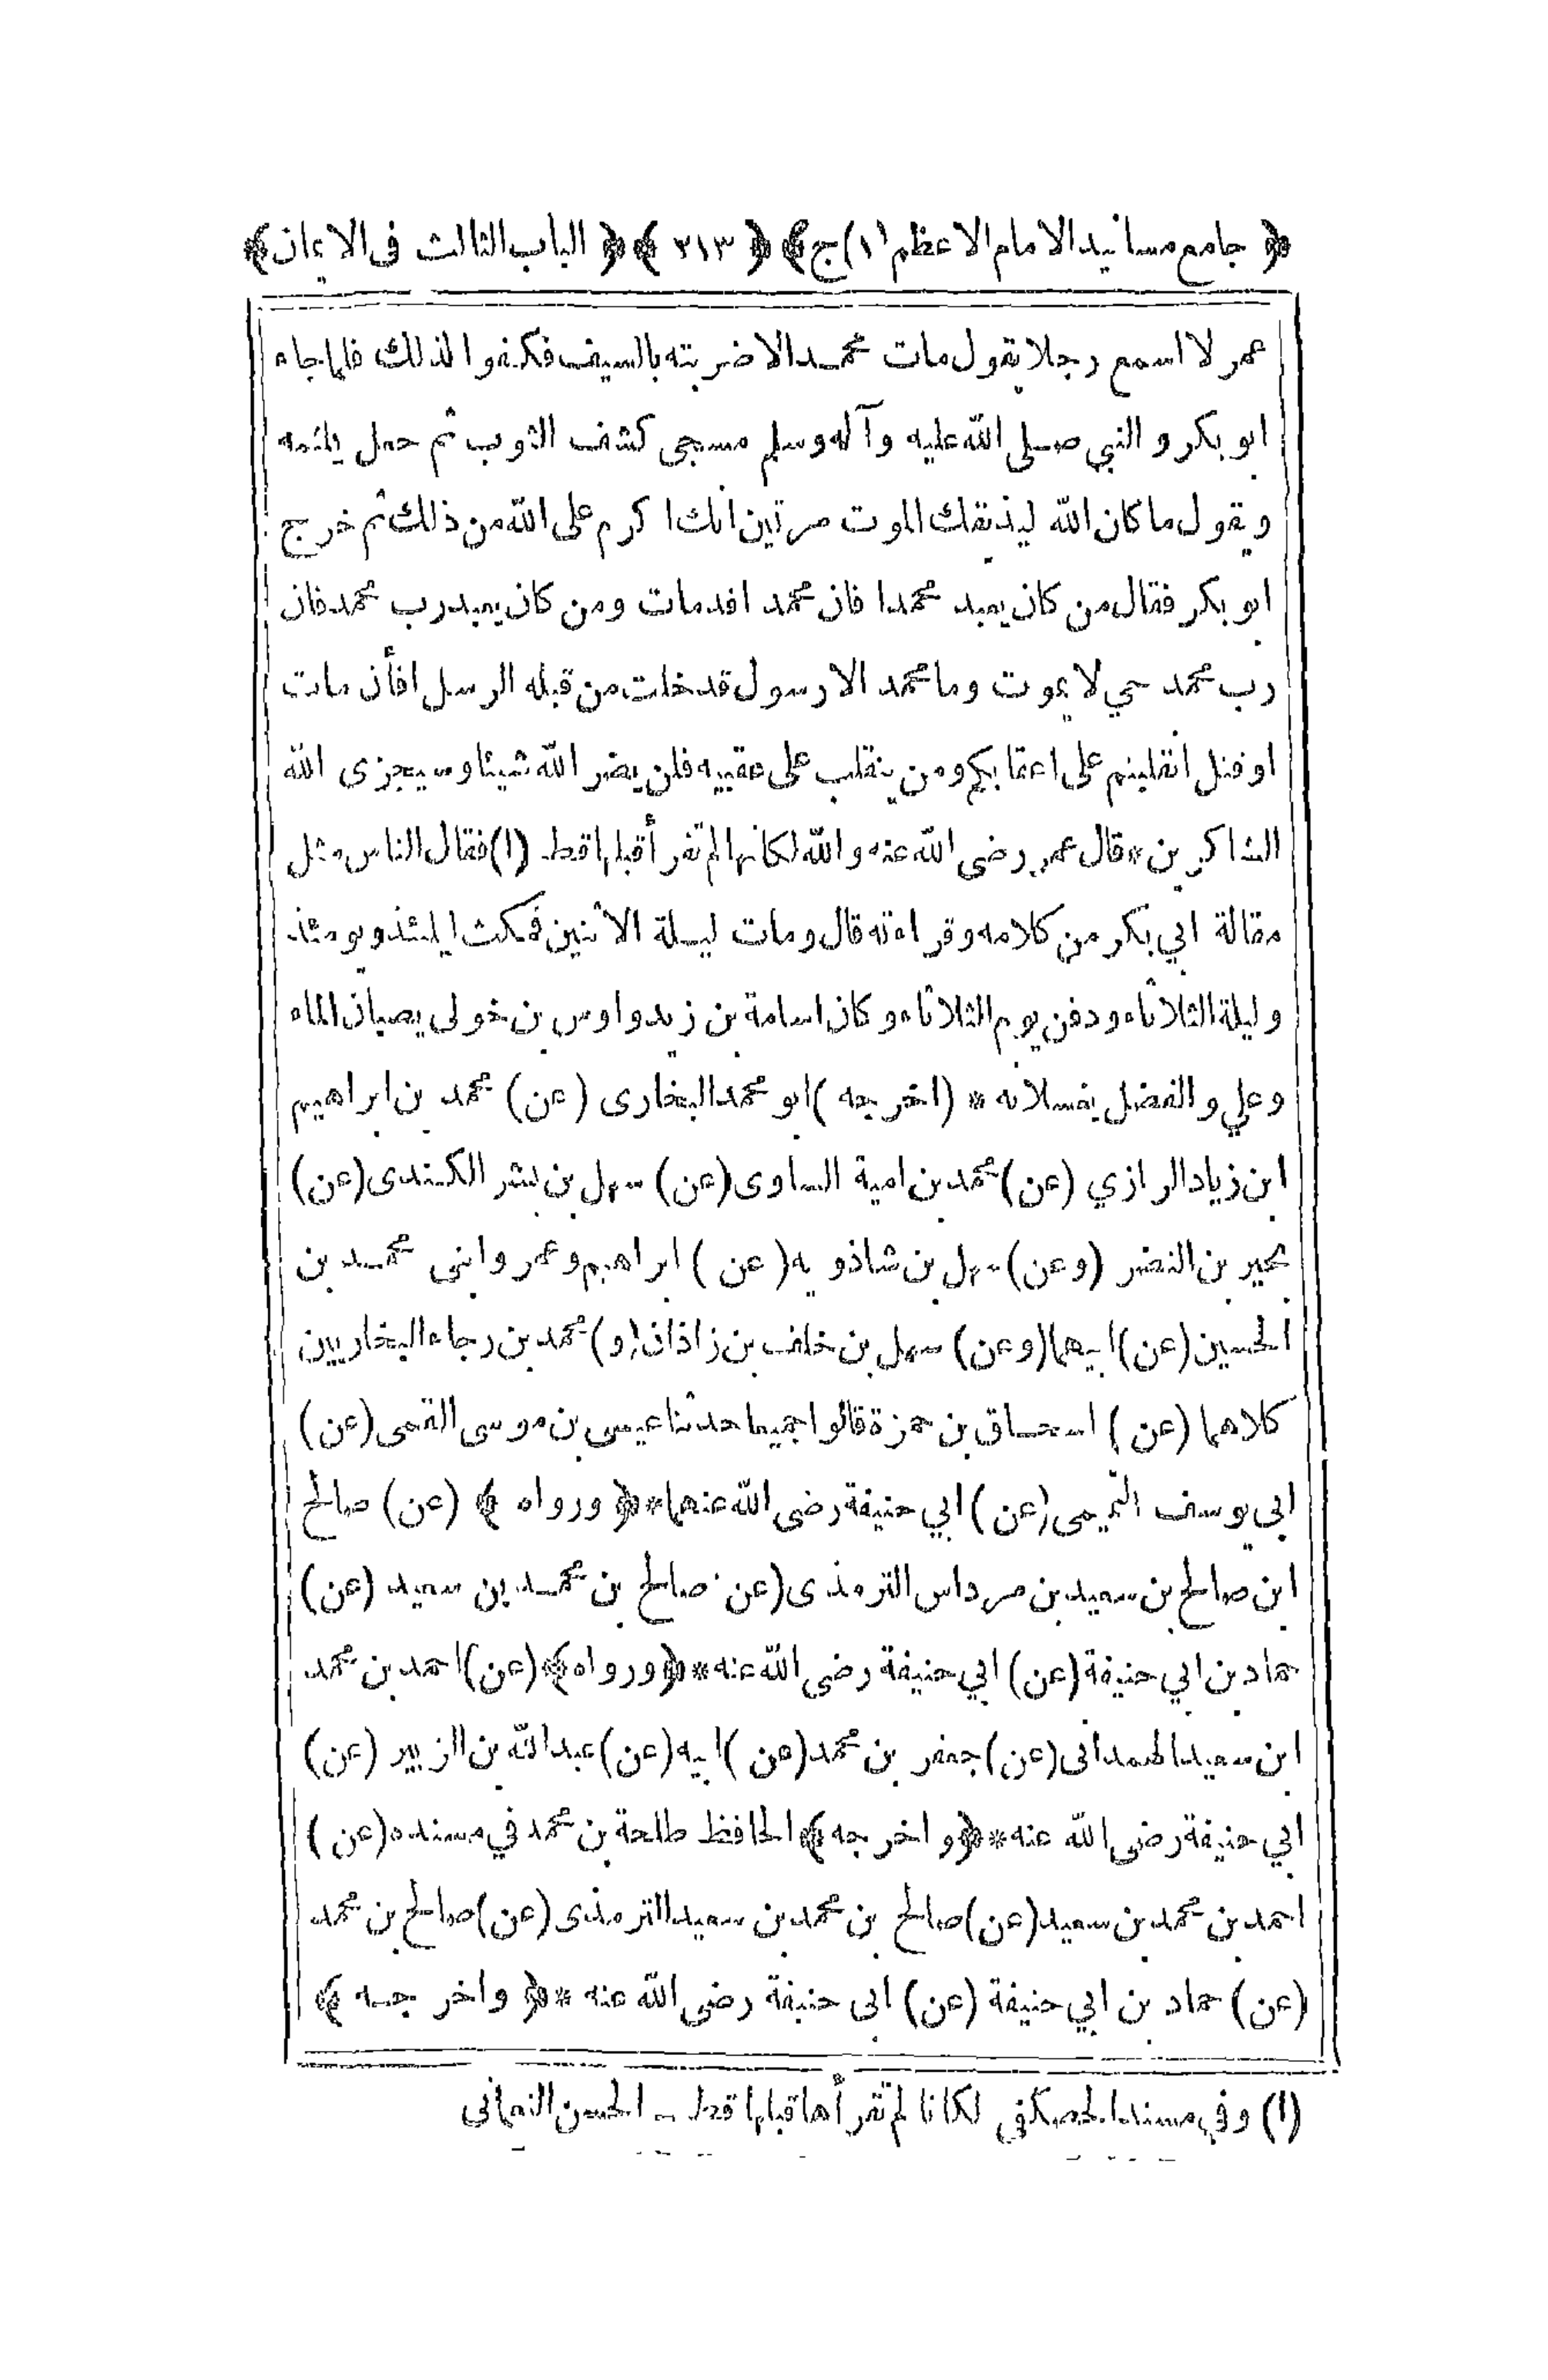 ﴿ جامع مسانيد الامام الاعظم (١) ج ﴾ ﴿ ٢١٣ ﴾ ﴿ الباب الثالث فى الايمان ﴾
عمر لا اسمع رجلا يقول مات محمد الا ضربته بالسيف فكفوا لذلك فلما جاء
ابو بكر و النبي صلى الله عليه وآله وسلم مسجى كشف الثوب ثم جعل يلثمه
ويقول ما كان الله ليذيقك الموت مرتين انك اكرم على الله من ذلك ثم خرج
ابو بكر فقال من كان يعبد محمدا فان محمد اقد مات ومن كان يعبد رب محمد فان
رب محمد حي لا يموت وما محمد الا رسول قد خلت من قبله الرسل افأن مات
او قتل انقلبتم على اعقابكم ومن ينقلب على عقبيه فلن يضر الله شيئا وسيجزى الله
الشاكرين * قال عمر رضى الله عنه والله لكانها لم تقرأ قبلها قط (١) فقال الناس مثل
مقالة ابي بكر من كلامه وقراءته قال ومات ليلة الاثنين فمكث ليلتئذ ويومئذ
وليلة الثلاثاء ودفن يوم الثلاثاء وكان اسامة بن زيد واوس بن خولى يصبان الماء
وعلي والفضل يغسلانه * (اخرجه) ابو محمد البخارى (عن) محمد بن ابراهيم
ابن زياد الرازي (عن) محمد بن امية الساوى (عن) سهل بن بشر الكندى (عن)
بحير بن النضر (وعن) سهل بن شاذويه (عن) ابراهيم وعمر وابنى محمد بن
الحسين (عن) ابيهما (وعن) سهل بن خلف بن زاذان (و) محمد بن رجاء البخاريين
كلاهما (عن) اسحاق بن حمزة قالوا جميعا حدثنا عيسى بن موسى التيمى (عن)
ابى يوسف التميمى (عن) ابي حنيفة رضى الله عنهما * ﴿ ورواه ﴾ (عن) صالح
ابن صالح بن سعيد بن مرداس الترمذى (عن) صالح بن محمد بن سعيد (عن)
حماد بن ابي حنيفة (عن) ابي حنيفة رضى الله عنه * ﴿ ورواه ﴾ (عن) احمد بن محمد
ابن سعيد الهمدانى (عن) جعفر بن محمد (عن) ابيه (عن) عبد الله بن الزبير (عن)
ابي حنيفة رضى الله عنه * ﴿ واخرجه ﴾ الحافظ طلحة بن محمد في مسنده (عن)
احمد بن محمد بن سعيد (عن) صالح بن محمد بن سعيد الترمذى (عن) صالح بن محمد
(عن) حماد بن ابي حنيفة (عن) ابى حنيفة رضى الله عنه * ﴿ واخرجه ﴾
(١) وفي مسند الحصكفى لكانا لم تقرأها قبلها قط ـ الحسن النعمانى